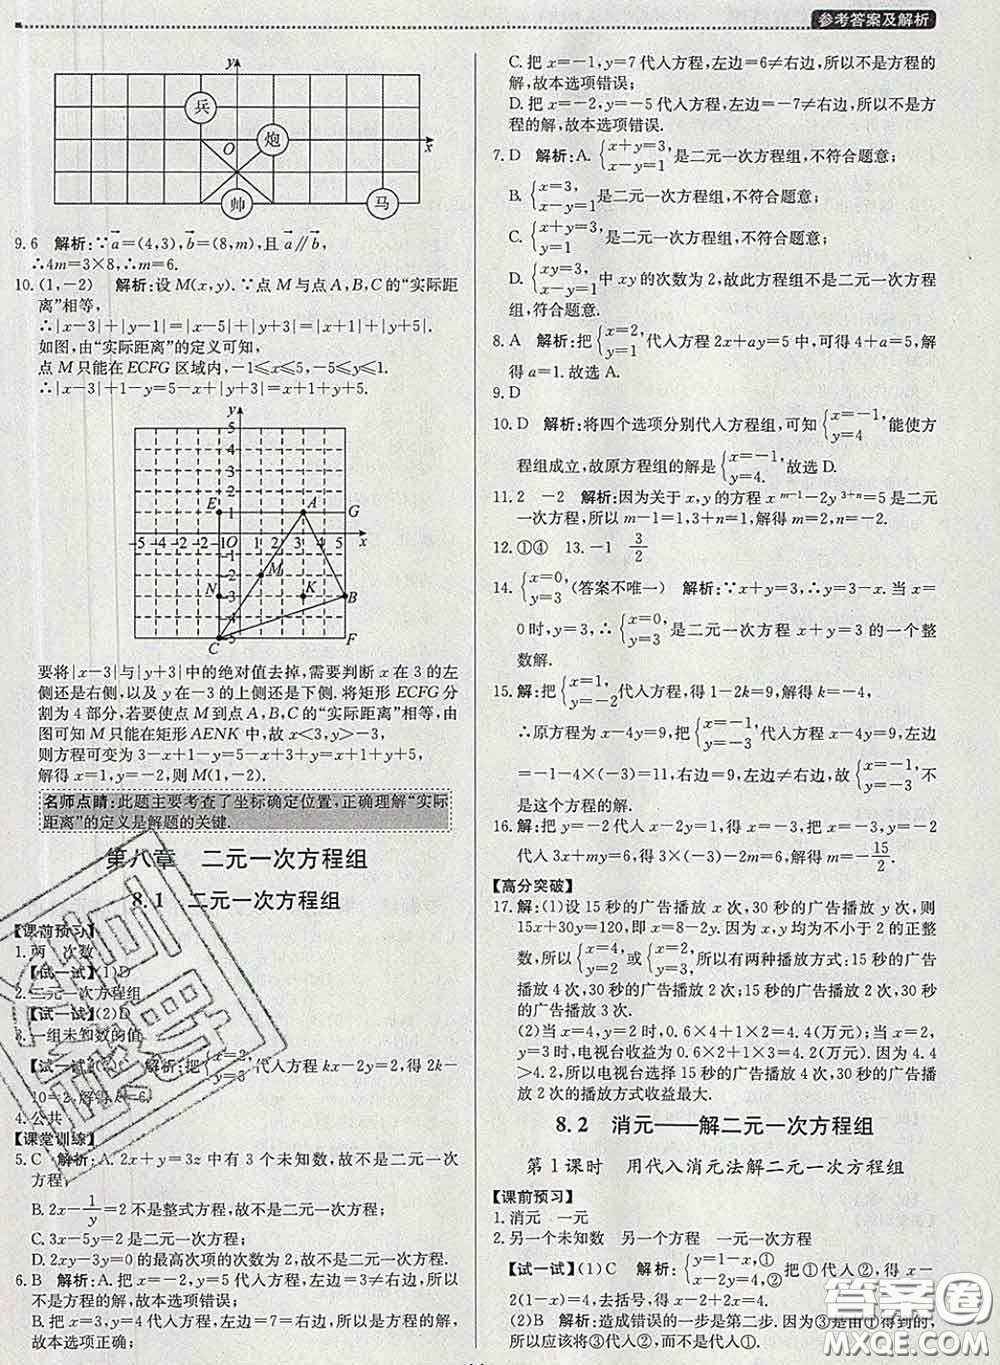 参考答案及解析
y
兵
炮
O
x
帅
马
9. 6 解析:∵a=(4,3),b=(8,m),且 a∥b,
∴4m=3×8,∴m=6.
10. (1,-2) 解析:设 M(x,y).∵点 M 与点 A,B,C 的“实际距
离”相等,
∴|x-3|+|y-1|=|x-5|+|y+3|=|x+1|+|y+5|.
如图,由“实际距离”的定义可知,
点 M 只能在 ECFG 区域内,-1≤x≤5,-5≤y≤1.
∴|x-3|+1-y=5-x+|y+3|=x+1+y+5.
y
5
4
3
2
E 1 A G
-5 -4 -3 -2 -1 O 1 2 3 4 5 x
-1
-2 M
N -3 K B
-4
C -5 F
要将|x-3|与|y+3|中的绝对值去掉,需要判断 x 在 3 的左
侧还是右侧,以及 y 在-3 的上侧还是下侧.将矩形 ECFG 分
割为 4 部分,若要使点 M 到点 A,B,C 的“实际距离”相等,由
图可知 M 只能在矩形 AENK 中,故 x<3,y>-3,
则方程可变为 3-x+1-y=5-x+y+3=x+1+5+y,
解得 x=1,y=-2,则 M(1,-2).
名师点睛:此题主要考查了坐标确定位置,正确理解“实际
距离”的定义是解题的关键.
第八章 二元一次方程组
8.1 二元一次方程组
【课前预习】
1. 两 次数
【试一试】(1)D
2. 二元一次方程组
【试一试】(2)D
3. 一组未知数的值
【试一试】 解析:把{x=2, y=3 代入方程 kx-2y=2,得 2k-
4. 公共
【课堂训练】
5. C 解析:A. 2x+y=3z 中有 3 个未知数,故不是二元一次方
程;
B. 2x-1/y=2 不是整式方程,故不是二元一次方程;
C. 3x-5y=2 是二元一次方程;
D. 2xy-3y=0 的最高次项的次数为 2,故不是二元一次方程.
6. B 解析:A. 把 x=-1,y=2 代入方程,左边=3≠右边,所以
不是方程的解,故本选项错误;
B. 把 x=2,y=3 代入方程,左边=1=右边,所以是方程的解,
故本选项正确;
C. 把 x=-1,y=7 代入方程,左边=6≠右边,所以不是方程的
解,故本选项错误;
D. 把 x=-2,y=-5 代入方程,左边=-7≠右边,所以不是方
程的解,故本选项错误.
7. D 解析:A. {x+y=3, x-y=1 是二元一次方程组,不符合题意;
B. {x=3, x-y=1 是二元一次方程组,不符合题意;
C. {x+y=3, y=1 是二元一次方程组,不符合题意;
D. {x+y=1, xy=2 中 xy 的次数为 2,故此方程组不是二元一次方程
组,符合题意.
8. A 解析:把{x=2, y=1 代入方程 2x+ay=5 中,可得 4+a=5,解
得 a=1.故选 A.
9. D
10. D 解析:将四个选项分别代入方程组,可知{x=-1, y=4 能使方
程组成立,故原方程组的解是{x=-1, y=4.故选 D.
11. 2 -2 解析:因为关于 x,y 的方程 x^{m-1}-2y^{3+n}=5 是二元
一次方程,所以 m-1=1,3+n=1,解得 m=2,n=-2.
12. ①④ 13. -1 3/2
14. {x=0, y=3 (答案不唯一) 解析:∵x+y=3,∴y=3-x.当 x=
0 时,y=3,∴{x=0, y=3 是二元一次方程 x+y=3 的一个整
数解.
15. 解:把{x=1, y=-2 代入方程,得 1-2k=9,解得 k=-4,
∴原方程为 x-4y=9,把{x=-1, y=-3 代入方程 x-4y=9,
左边=-1-4×(-3)=11≠右边,所以{x=-1, y=-3 不
是这个方程的解.
16. 解:把 y=-2 代入 x-2y=1,得 x=-3,把 x=-3,y=-2
代入 3x+my=6,得 3×(-3)-2m=6,解得 m=-15/2.
【高分突破】
17. 解:(1)设 15 秒的广告播放 x 次,30 秒的广告播放 y 次,则
15x+30y=120,即 x=8-2y.因为 x,y 均为不小于 2 的正整
数,所以{x=4, y=2 或{x=2, y=3,所以有两种播放方式:15 秒的广
告播放 4 次,30 秒的广告播放 2 次;15 秒的广告播放 2 次,30 秒
的广告播放 3 次.
(2)当 x=4,y=2 时,0.6×4+1×2=4.4(万元);当 x=2,
y=3 时,电视台收益为 0.6×2+1×3=4.2(万元).因为 4.4
>4.2,所以电视台选择 15 秒的广告播放 4 次,30 秒的广告播
放 2 次的播放方式收益最大.
8.2 消元——解二元一次方程组
第 1 课时 用代入消元法解二元一次方程组
【课前预习】
1. 消元 一元
2. 另一个未知数 另一个方程 一元一次方程
【试一试】(1)C 解析:{y=1-x,① x-2y=4,② 把①代入②,得 x-
2(1-x)=4,去括号,得 x-2+2x=4.
(2)B 解析:造成错误的一步是第二步.因为③由①得到,
所以应该将③代入②,而不是代入①.
答案圈
MXQE.COM